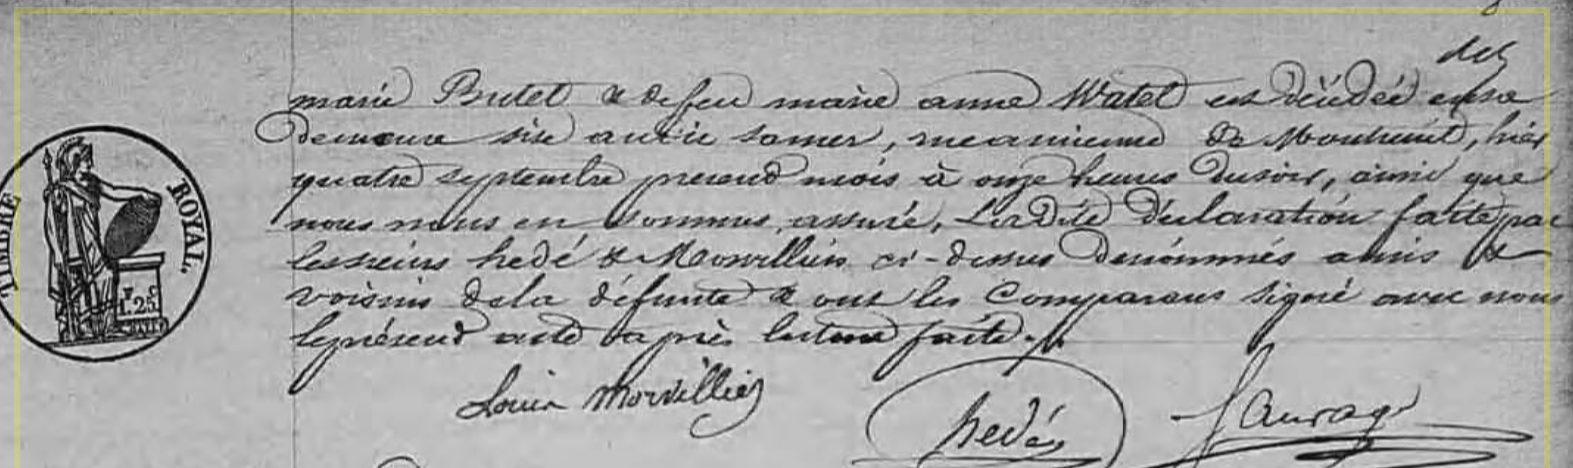 TIMBRE ROYAL.
1.25
marie Butel & de feu marie anne Watel est décédée en sa
demeure sise au dit samer, ancienne de Montreuil, hier
quatre septembre présend mois à onze heures du soir, ainsi que
nous nous en sommes assuré, Ladite déclaration faite par
les sieurs hedé & Morvillier ci-dessus dénommés amis &
voisins de la défunte & ont les Comparans signé avec nous
le présend acte après lecture faite.
Louis Morvillier
hedé
Sauvage